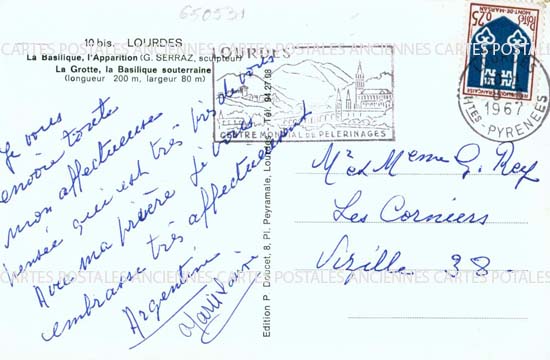 650531
10 bis. LOURDES
La Basilique, l'Apparition (G. SERRAZ, sculpteur)
La Grotte, la Basilique souterraine
(longueur 200 m, largeur 80 m)
Je vous
encore toute
mon affectueuse
pensée qui est très près de vous
Avec ma prière Je vous
embrasse très affectueusement
Argentine
Edition P. Doucet, 8, Pl. Peyramale, Lourdes - Tél. 94.27.08
LOURDES
CENTRE MONDIAL DE PELERINAGES
1967
HTES-PYRENEES
0,25
MONT-DE-MARSAN
REPUBLIQUE FRANCAISE
Mr et Mme G. Rey
Les Corniers
Vizille 38.
CARTES POSTALES ANCIENNES CARTES POSTALES ANCIENNES CARTES POSTALES ANCIENNES